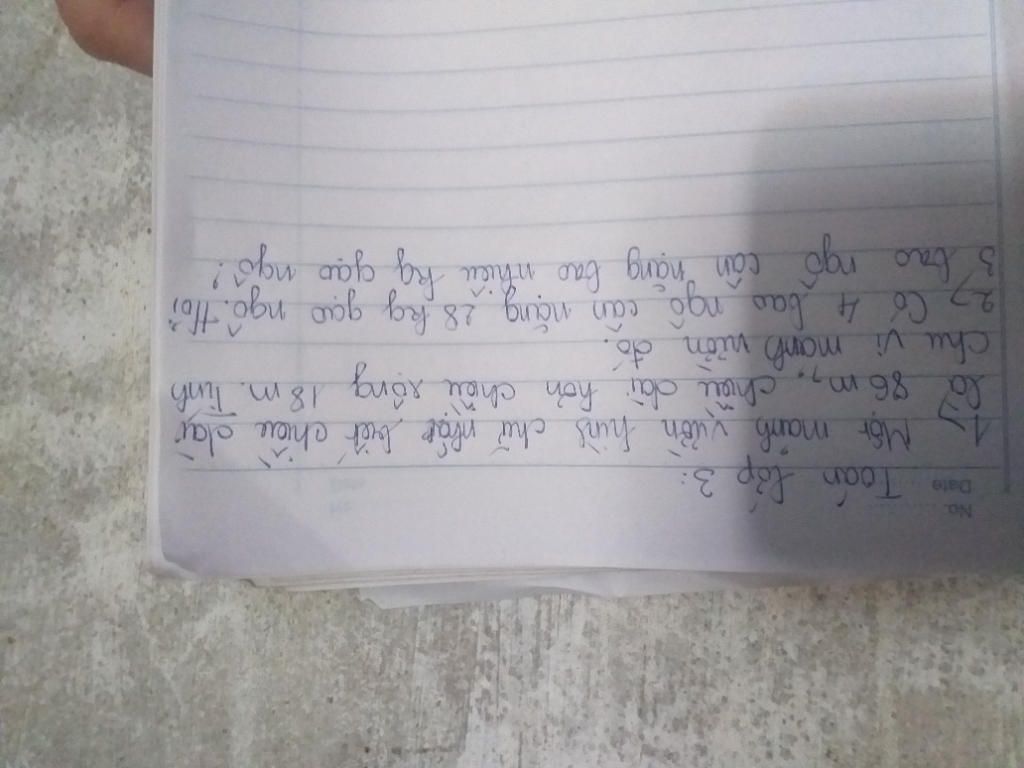 No.
Date
Toán lớp 3:
1, Một mảnh vườn hình chữ nhật biết chiều dài
là 86 m, chiều dài hơn chiều rộng 18 m. Tính
chu vi mảnh vườn đó.
2, Có 4 bao ngô cân nặng 28 kg gạo ngô. Hỏi
3 bao ngô cân nặng bao nhiêu kg gạo ngô?